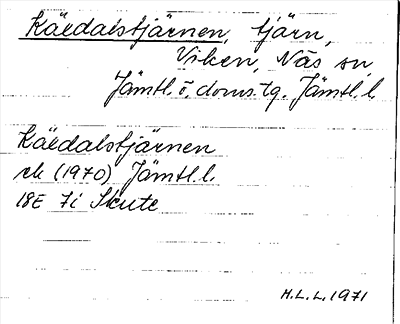 Käldalstjärnen, tjärn,
Viken, Näs sn,
Jämtl. ö. doms. tg. Jämtl. l.
Käldalstjärnen
ek (1970) Jämtl. l.
18E 7i Skute
H.L.L. 1971